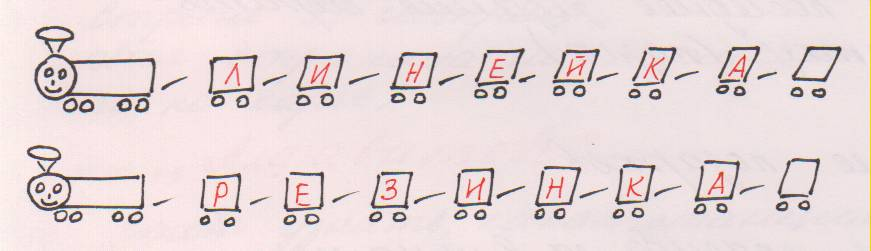 ЛИНЕЙКА
РЕЗИНКА